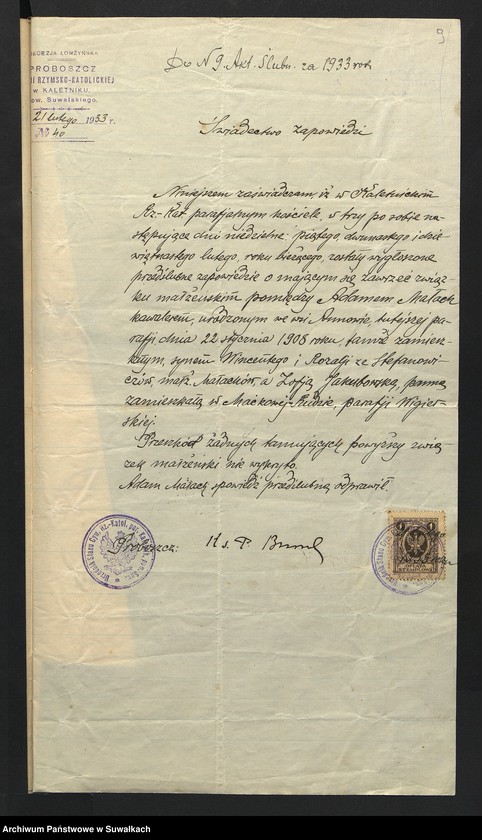 9
DIECEZJA ŁOMŻYŃSKA
PROBOSZCZ
II RZYMSKO-KATOLICKIEJ
w KALETNIKU,
pow. Suwalskiego.
21 lutego 1933 r.
№ 40
Do N 9. Akt. Ślubn. za 1933 rok
Świadectwo zapowiedzi
Niniejszem zaświadczam, iż w Kaletnickim
Rz.-Kat. parafjalnym kościele, w trzy po sobie na-
stępujące dni niedzielne: piątego, dwunastego i dzie-
więtnastego lutego, roku bieżącego, zostały wygłoszone
przedślubne zapowiedzie o mającym się zawrzeć związ-
ku małżeńskim pomiędzy Adamem Małach
kawalerem, urodzonym we wsi Annowie, tutejszej pa-
rafji, dnia 22 stycznia 1908 roku, tamże zamiesz-
kałym, synem Wincentego i Rozalji ze Stefanowi-
czów, małż. Małachów, a Zofją Jakuborską, panną
zamieszkałą w Maćkowej-Rudzie, parafji Wigier-
skiej.
Przeszkód żadnych tamujących powyższy zwią-
zek małżeński nie wykryto.
Adam Małach spowiedź przedślubną odprawił.
Proboszcz: Ks. P.
1 1
OPŁATA
STEMPLOWA
Urzędnik Stanu Cyw. Rz.-Katol. par. Kaletnik, pow. Suw.
Archiwum Państwowe w Suwałkach